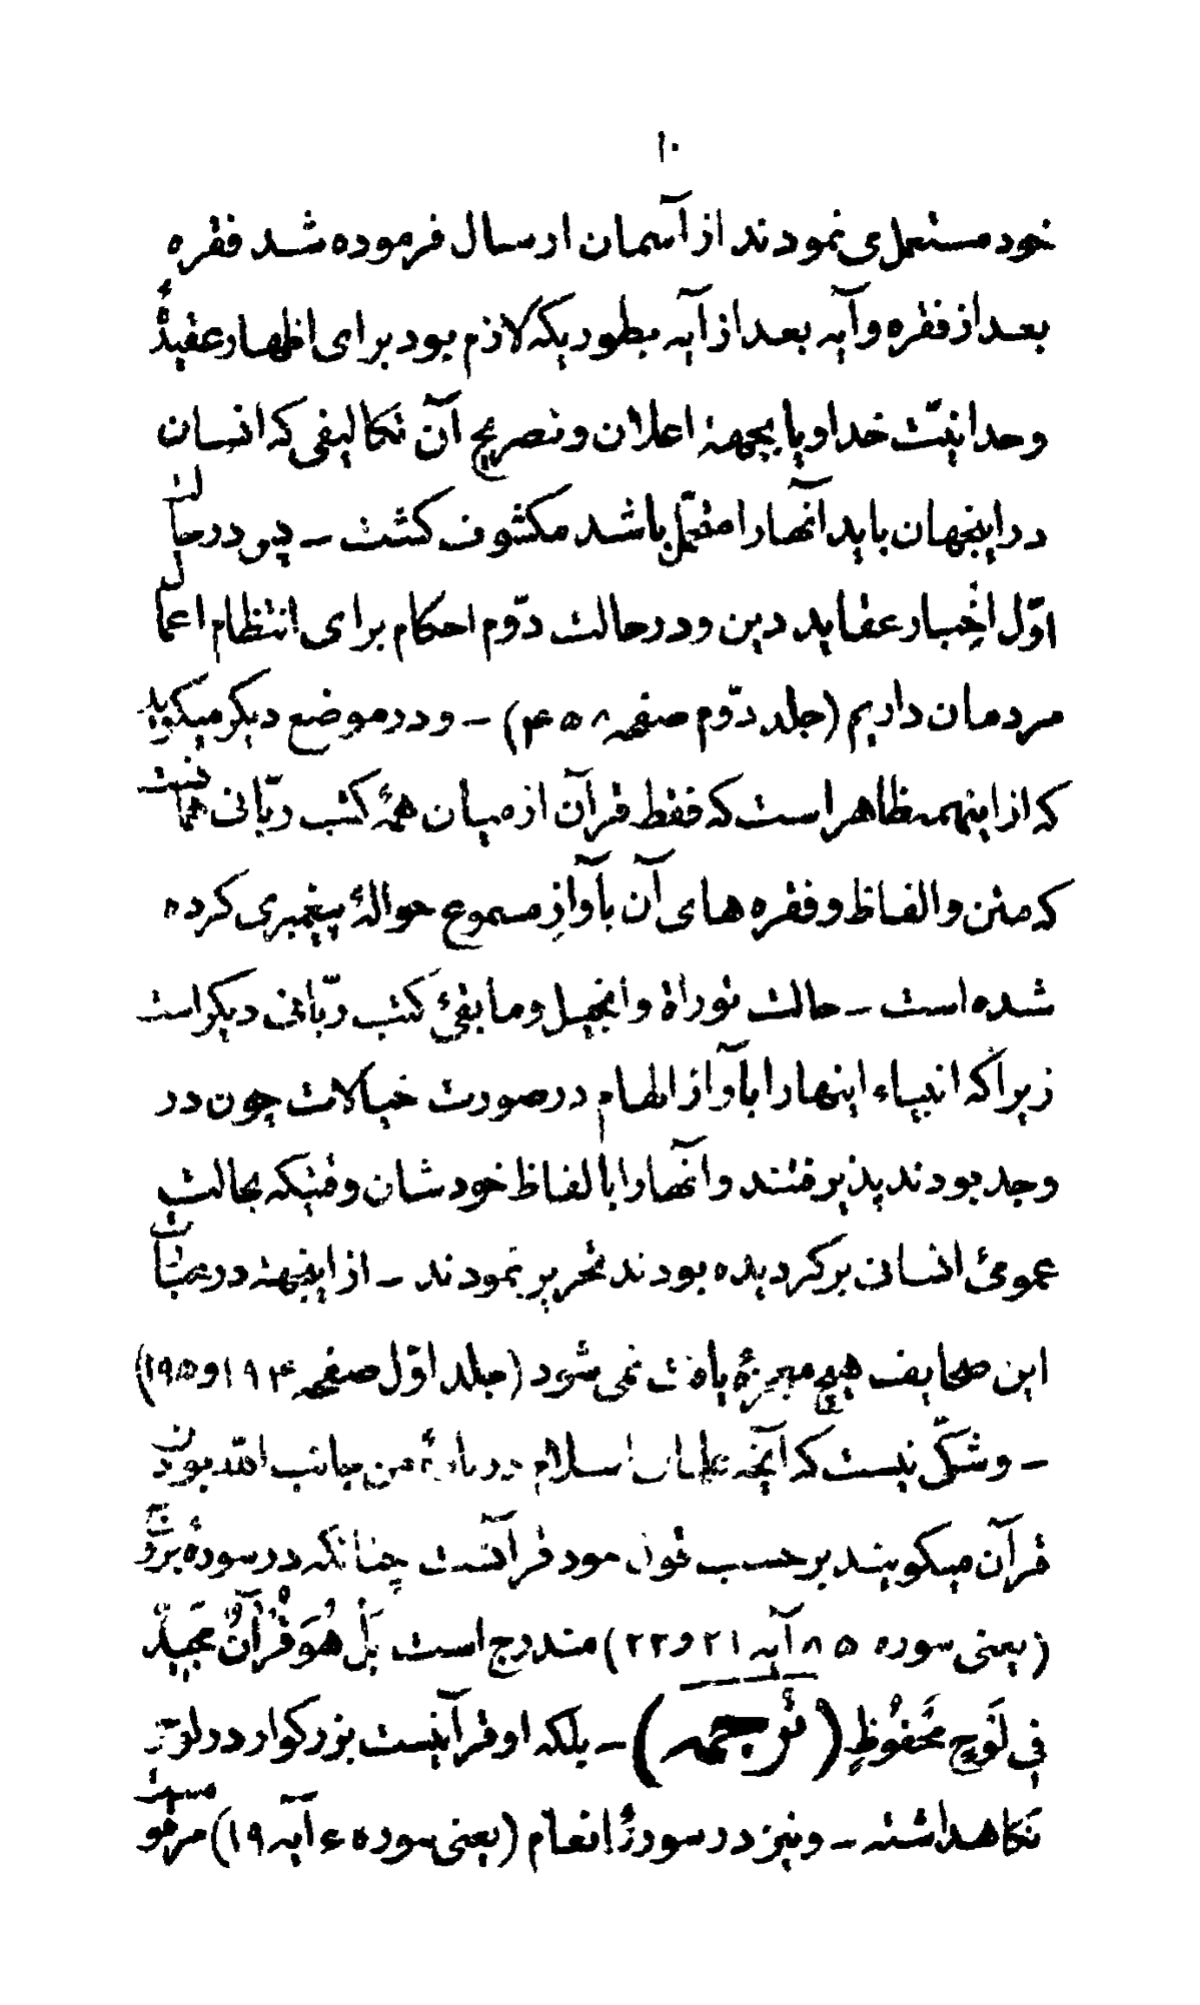 ۱۰
خود مستعمل می نمودند از آسمان ارسال فرموده شد فقره
بعد از فقره و آیه بعد از آیه بطوریکه لازم بود برای اظهار عقیدهٔ
وحدانیّت خدا و یا بجهة اعلان و تصریح آن تکالیفی که انسان
در اینجهان باید آنها را متحمّل باشد مکشوف کشت – پس در حالت
اوّل اخبار عقاید دین و در حالت دوّم احکام برای انتظام اعمال
مردمان داریم (جلد دوّم صفحه ۴۵۸) – و در موضع دیکر میکوید
که از اینهمه ظاهر است که فقط قرآن از میان همهٔ کتب ربّانی همانست
که متن و الفاظ و فقره های آن بآوازِ مسموع حوالهٔ پیغمبری کرده
شده است – حالت توراة و انجیل و مابقیٔ کتب ربّانی دیکر است
زیرا که انبیاء اینها را بآواز الهام در صورت خیالات چون در
وجد بودند پذیرفتند و آنها را بالفاظ خودشان وقتیکه بحالت
عمومیٔ انسانی برکردیده بودند تحریر نمودند – از اینجهة در عبارات
این صحایف هیچ معجزهٔ یافت نمی شود (جلد اوّل صفحه ۱۹۴ و ۱۹۵)
– و شکّی نیست که آنچه علمای اسلام در بارهٔ من جانب الله بودن
قرآن میکویند بر حسب قول خود قرآنست چنانکه در سورهٔ بروج
(یعنی سوره ۸۵ آیه ۲۱ و ۲۲) مندرج است بَلْ هُوَ قُرْآنٌ مَجِیدٌ
فِی لَوْحٍ مَحْفُوظٍ (ترجمه) – بلکه او قرآنیست بزرکوار در لوح
نکاهداشته – و نیز در سورهٔ انعام (یعنی سوره ۶ آیه ۱۹) مرقومست